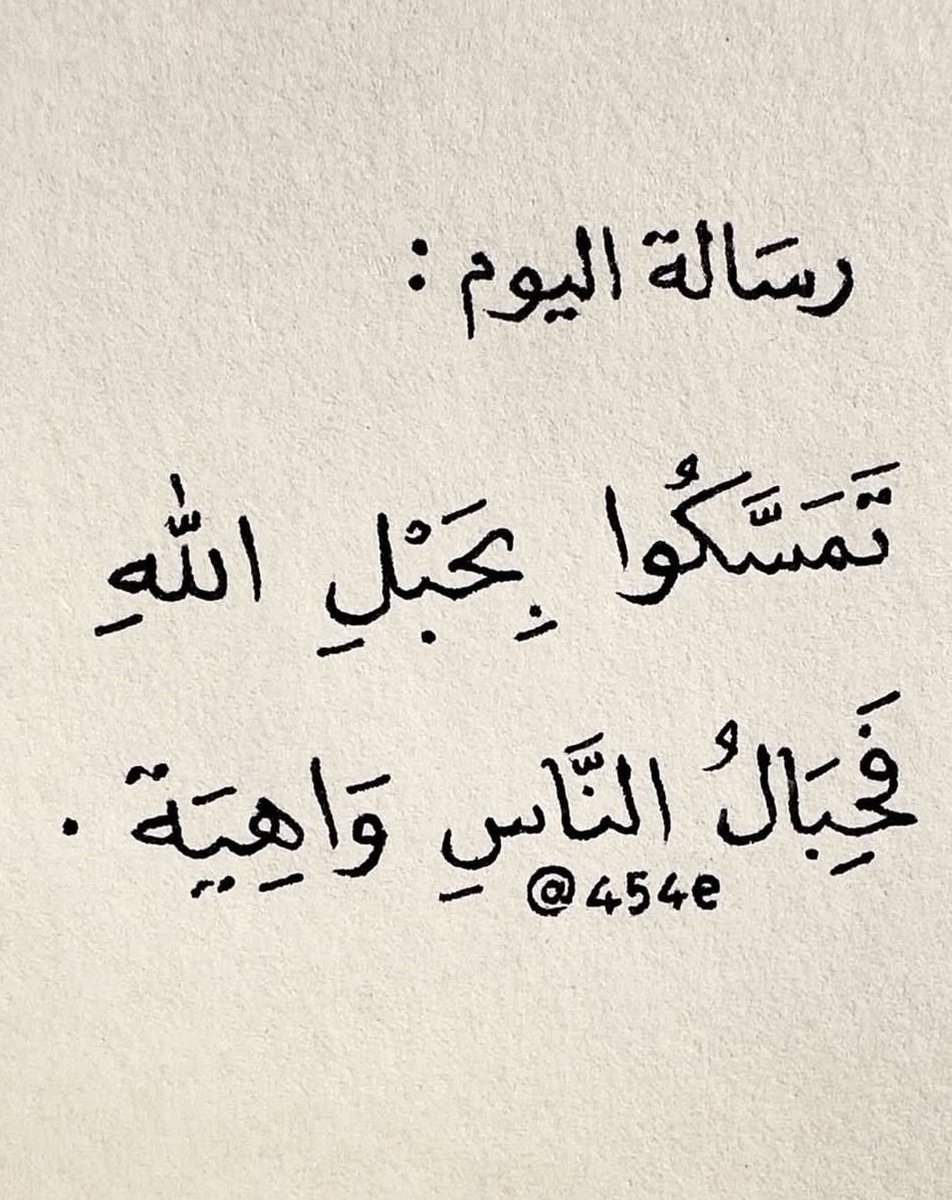 رسَالة اليوم :
تَمَسَّكُوا بِحَبْلِ اللّٰهِ
فَحِبَالُ النَّاسِ وَاهِيَة .
@454e